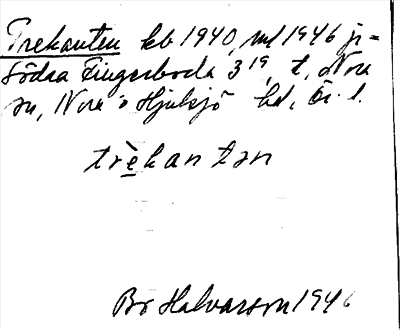 Trekanten kb 1940, ml 1946 ji-
Södra Fingerboda 3¹⁹, t, Nora
sn, Nora o Hjulsjö hd, Ör. l.
trèkantən
Bo Halvarson 1946